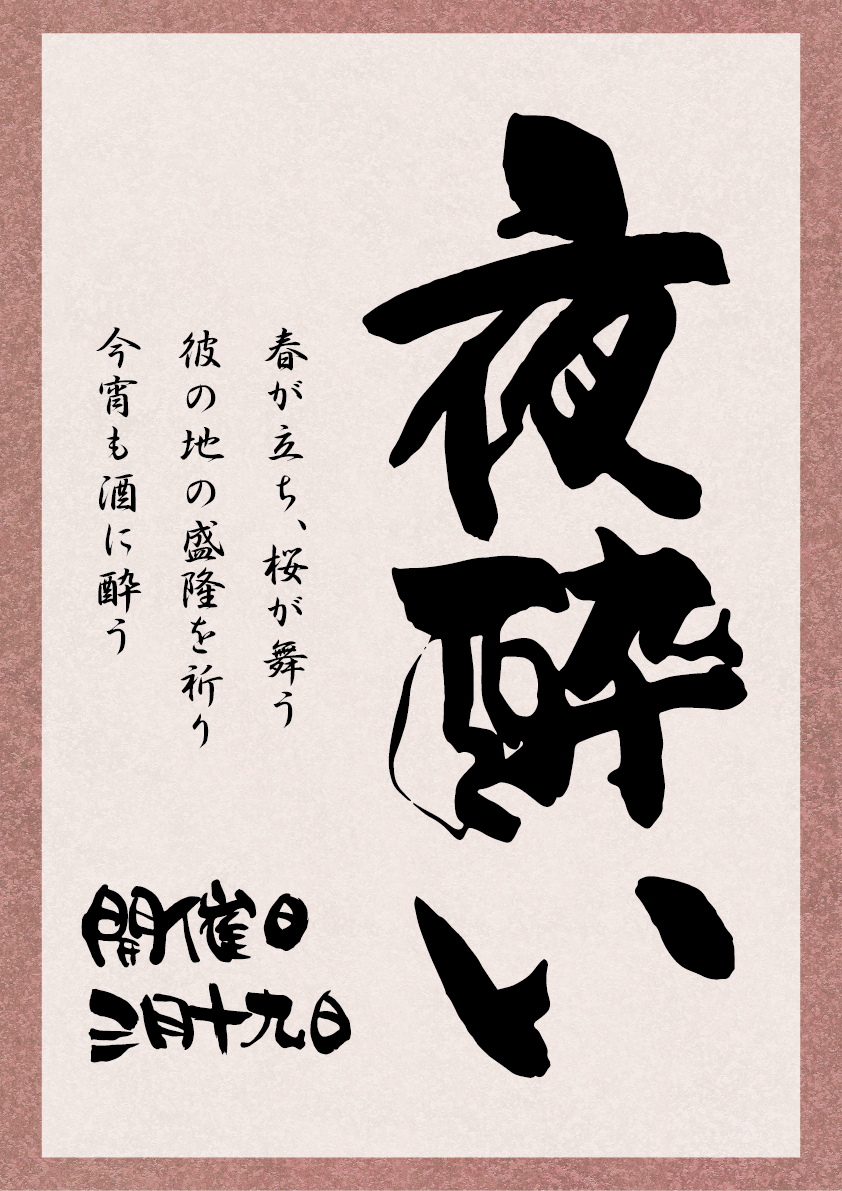 夜酔い
春が立ち、桜が舞う
彼の地の盛隆を祈り
今宵も酒に酔う
開催日
三月十九日